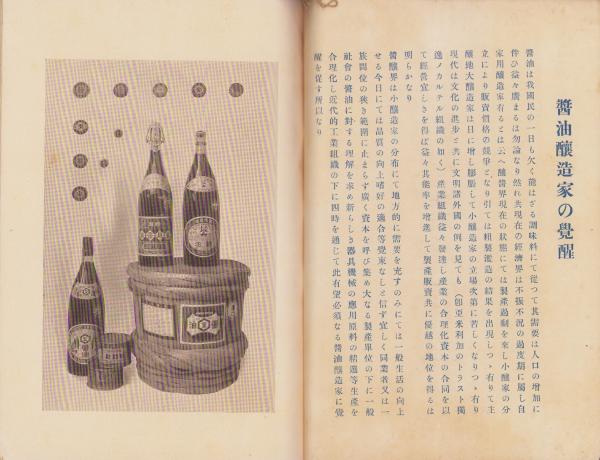 醬油釀造家の覺醒
醬油は我國民の一日も欠く能はざる調味料にて從つて其需要は人口の增加に
伴ひ益々廣まるは勿論なり然れ共現在の經濟界は不振不況の過度期に屬し自
家用釀造家有るとは云へ釀醬界現在の狀態にては製產過剩を來し小釀家の分
立により販賣價格の競爭となり引ては粗製濫造の結果を出現しつゝ有りて主
釀地大釀造家は日に增し膨脹して小釀造家の立場次第に苦しくなりつゝ有り
現代は文化の進步と共に文明諸外國の例を見ても（卽亞米利加のトラスト獨
逸ノカルテル組織の如く）產業組織益々發達し產業の合理化資本の合同を以
て經營宜しきを得ば益々其能率を增進して製產販賣共に優越の地位を得るは
明らかなり
醬釀界は小釀造家の分布にて地方的に需要を充すのみにては一般生活の向上
せる今日にては品質の向上嗜好の適合等覺束なしと信ず宜しく同業者又は一
族間位の狹き範圍に止まらず廣く資本を呼び集め大なる製產單位の下に一般
社會の醬油に對する理解を求め新らしき器具機械の應用原料の精選等生產を
合理化し近代的工業組織の下に四時を通じて此有望必須なる醬油釀造家に覺
醒を促す所以なり